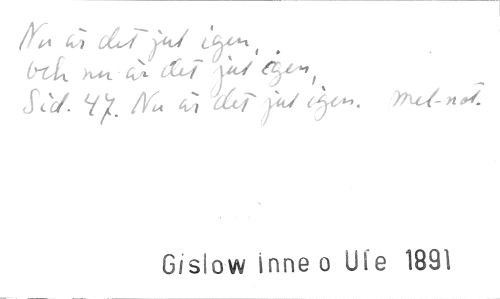 Nu är det jul igen,
och nu är det jul igen,
Sid. 47. Nu är det jul igen. mel-not.
Gislow Inne o Ute 1891